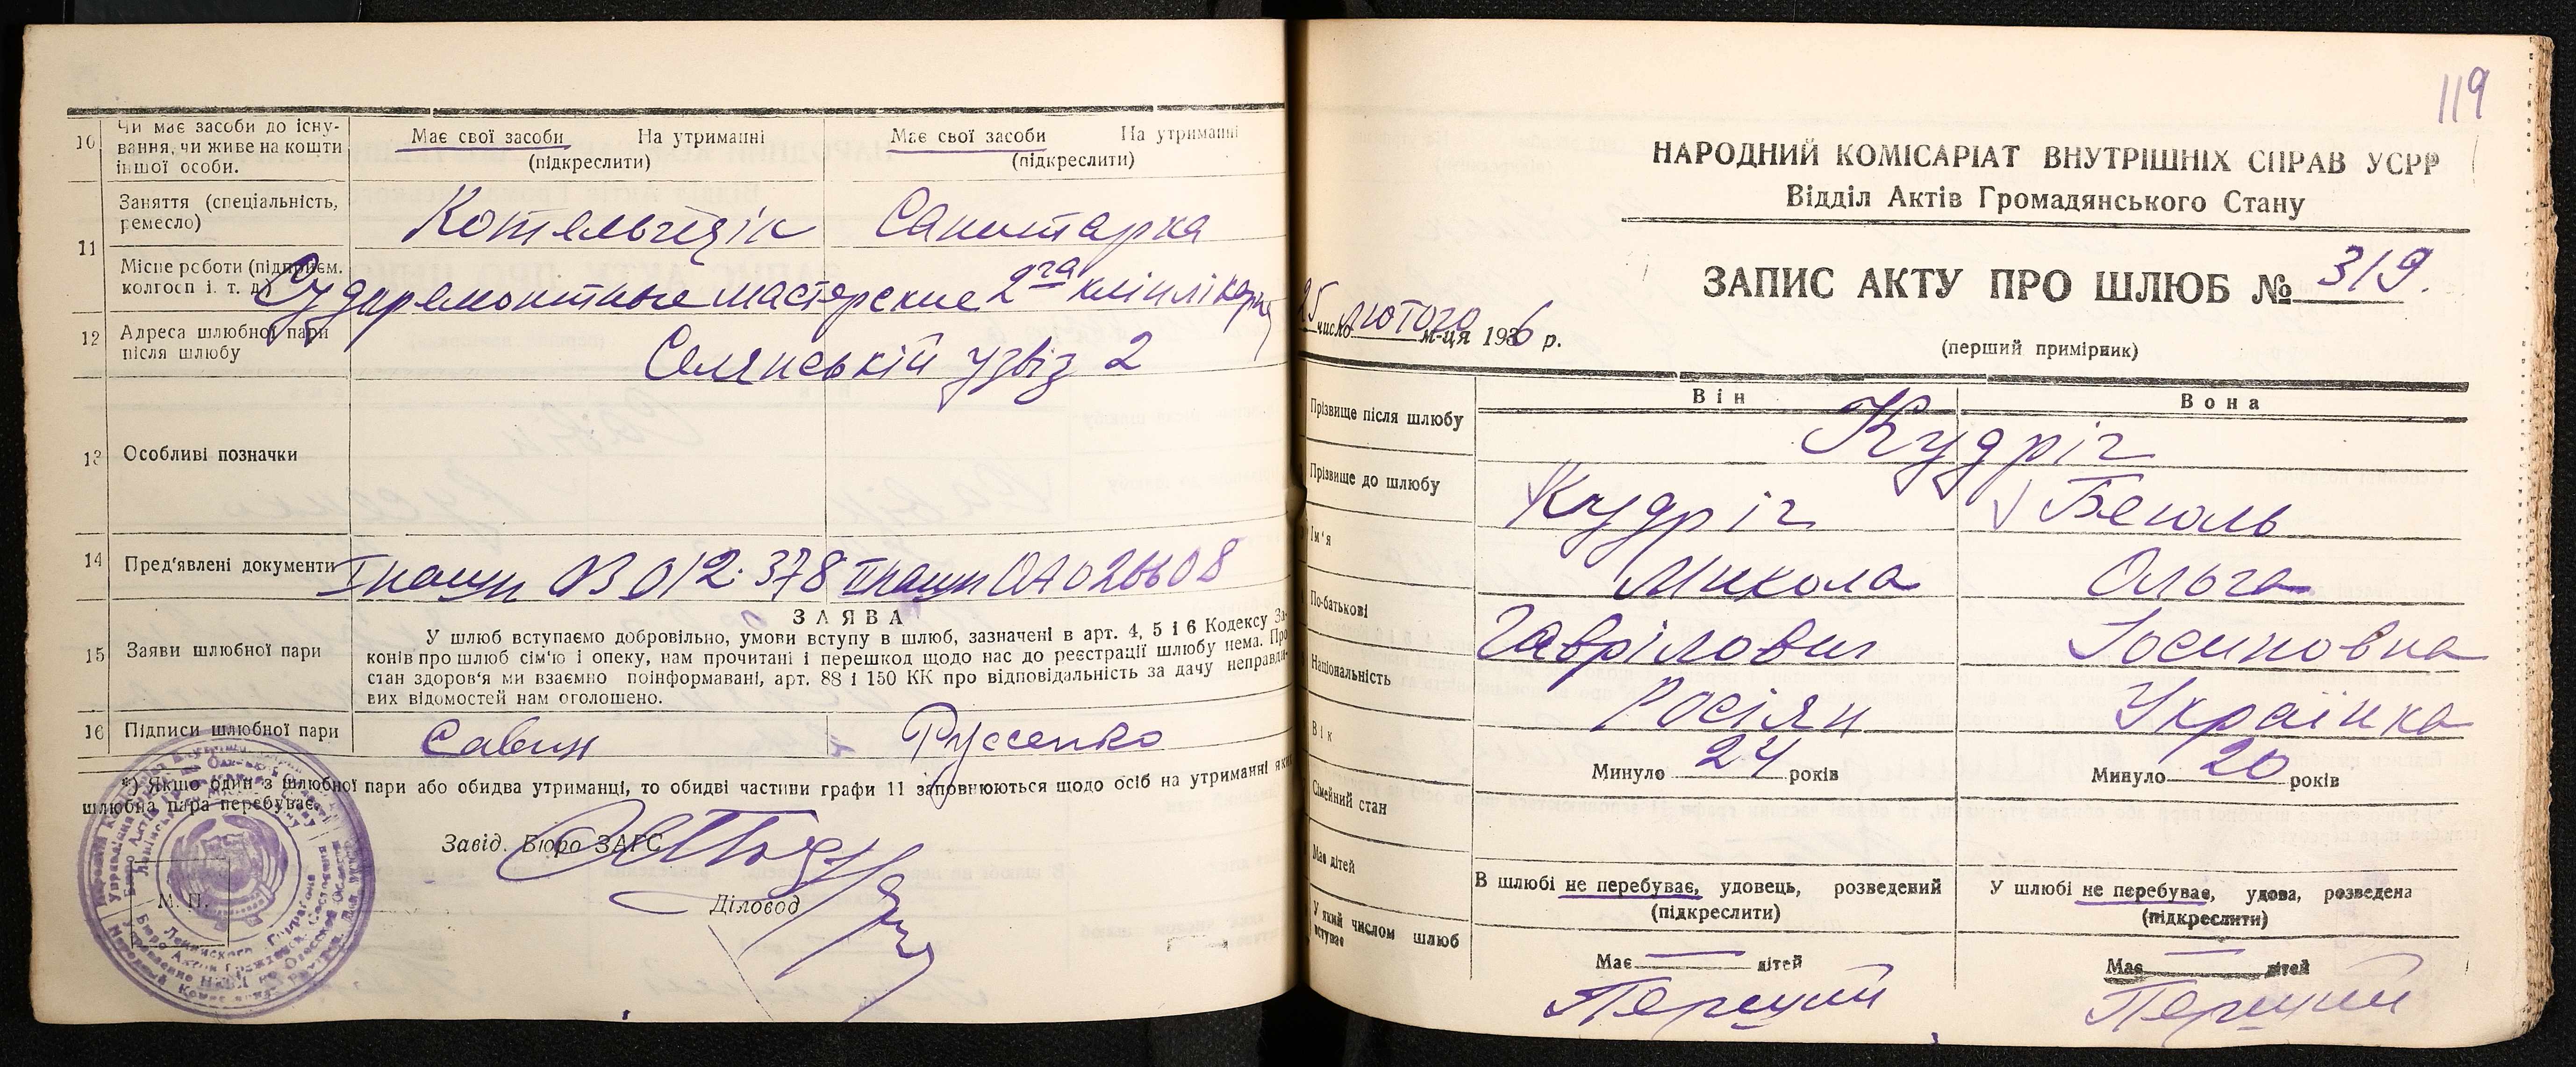 10 Чи має засоби до існу-
вання, чи живе на кошти
іншої особи.
Має свої засоби На утриманні
(підкреслити)
Має свої засоби На утриманні
(підкреслити)
11 Заняття (спеціальність,
ремесло)
Котельщік Санитарка
Місце роботи (підприєм.
колгосп і. т. д.)
Судоремонтные мастерские 2га
12 Адреса шлюбної пари
після шлюбу
узвіз 2
13 Особливі позначки
14 Пред'явлені документи
ОВ 012.378
15 Заяви шлюбної пари
ЗАЯВА
У шлюб вступаємо добровільно, умови вступу в шлюб, зазначені в арт. 4, 5 і 6 Кодексу За-
конів про шлюб сім'ю і опеку, нам прочитані і перешкод щодо нас до реєстрації шлюбу нема. Про
стан здоров'я ми взаємно поінформавані, арт. 88 і 150 КК про відповідальність за дачу неправди-
вих відомостей нам оголошено.
16 Підписи шлюбної пари
Савин Руссенко
*) Якщо один з шлюбної пари або обидва утриманці, то обидві частини графи 11 заповнюються щодо осіб на утриманні яких
шлюбна пара перебуває.
Завід. Бюро ЗАГС
М. П.
Діловод
119
НАРОДНИЙ КОМІСАРІАТ ВНУТРІШНІХ СПРАВ УСРР
Відділ Актів Громадянського Стану
ЗАПИС АКТУ ПРО ШЛЮБ № 319.
25 число лютого м-ця 1936 р.
(перший примірник)
Він Вона
Прізвище після шлюбу
Кудріч
Прізвище до шлюбу
Кудріч
Ім'я
Микола Ольга
По-батькові
Гаврілович Іосиповна
Національність
Росіян Українка
Вік
Минуло 24 років
Минуло 20 років
Сімейний стан
В шлюбі не перебуває, удовець, розведений
(підкреслити)
У шлюбі не перебуває, удова, розведена
(підкреслити)
Має дітей
Має — дітей
Має — дітей
У який числом шлюб
вступає
Перший Перший